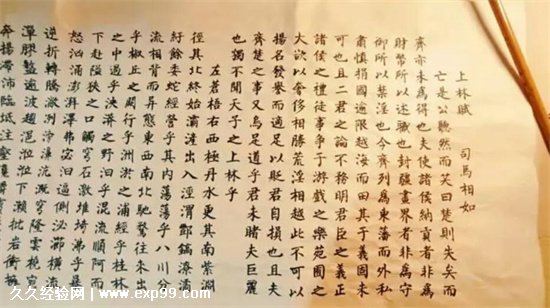 上林賦 司馬相如
亡是公聽然而笑曰楚則失矣而
齊亦未為得也夫使諸侯納貢者非為
財幣所以述職也封疆畫界者非為守
御所以禁淫也今齊列為東藩而外私
肅慎捐國逾限越海而田其於義固未
可也且二君之論不務明君臣之義正
諸侯之禮徒事爭于游戲之樂苑囿之
大欲以奢侈相勝荒淫相越此不可以
揚名發譽而適足以貶君自損也且夫
齊楚之事又烏足道乎君未睹夫巨麗
也獨不聞天子之上林乎
左蒼梧右西極丹水更其南紫淵
徑其北終始灞滻出入涇渭酆鎬潦潏
紆餘委蛇經營乎其內蕩蕩乎八川分
流相背而異態東西南北馳騖往來出
乎椒丘之闕行乎洲淤之浦經乎桂林
之過乎泱漭之野汩乎混流順阿而
下赴隘狹之口觸穹石激堆埼沸乎暴
怒洶涌澎湃滭弗宓汩逼側泌瀄橫流
逆折轉騰潎洌滂濞沆溉穹隆雲橈宛
潬膠盭逾波趨浥涖涖下瀨批岩衝擁
奔揚滯沛臨坻注壑
久久经验网 www.exp99.com